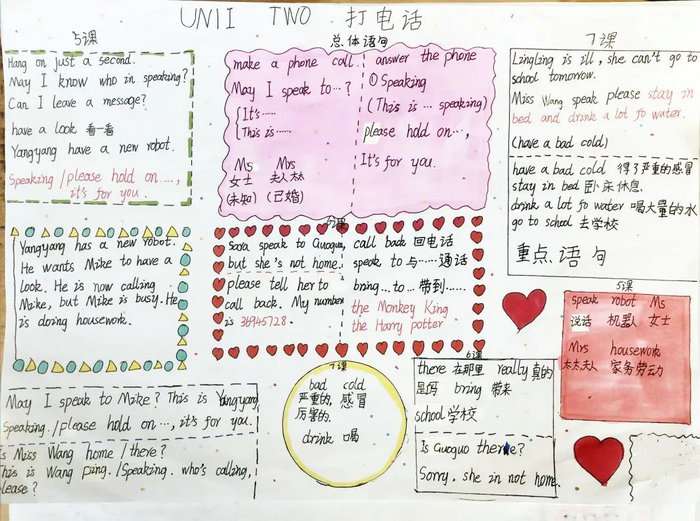 UNIT TWO 打电话
5课
Hang on just a second.
May I know who in speaking?
Can I leave a message?
have a look 看一看
Yangyang have a new robot.
Speaking /please hold on ...,
it's for you.
总体语句
make a phone call
May I speak to...?
It's......
This is......
Ms Mrs
女士 夫人太太
(未知) (已婚)
answer the phone
①Speaking
(This is ... speaking)
please hold on...,
It's for you.
7课
Lingling is ill, she can't go to
school tomorrow.
Miss Wang speak please stay in
bed and drink a lot fo water.
(have a bad cold)
have a bad cold 得了严重的感冒
stay in bed 卧床休息.
drink a lot fo water 喝大量白的水
go to school 去学校
重点语句
Yangyang has a new robot.
He wants Mike to have a
look. He is now calling
Mike, but Mike is busy. He
is doing housework.
6课
Sara speak to Guoguo,
but she's not home.
please tell her to
call back. My number
is 36945728.
call back 回电话
speak to 与......通话
bring...to...带到......
the Monkey King
the Harry potter
5课
speak robot Ms
说话 机器人 女士
Mrs housework
太太,夫人 家务劳动
May I speak to Mike? This is Yangyang
Speaking. /please hold on ..., it's for you.
Is Miss Wang home /there?
This is Wang ping. /Speaking. who's calling,
please?
7课
bad cold
严重的, 感冒
厉害的.
drink 喝
6课
there 在那里 really 真的
是吗 bring 带来
school 学校
Is Guoguo there?
Sorry. she in not home.